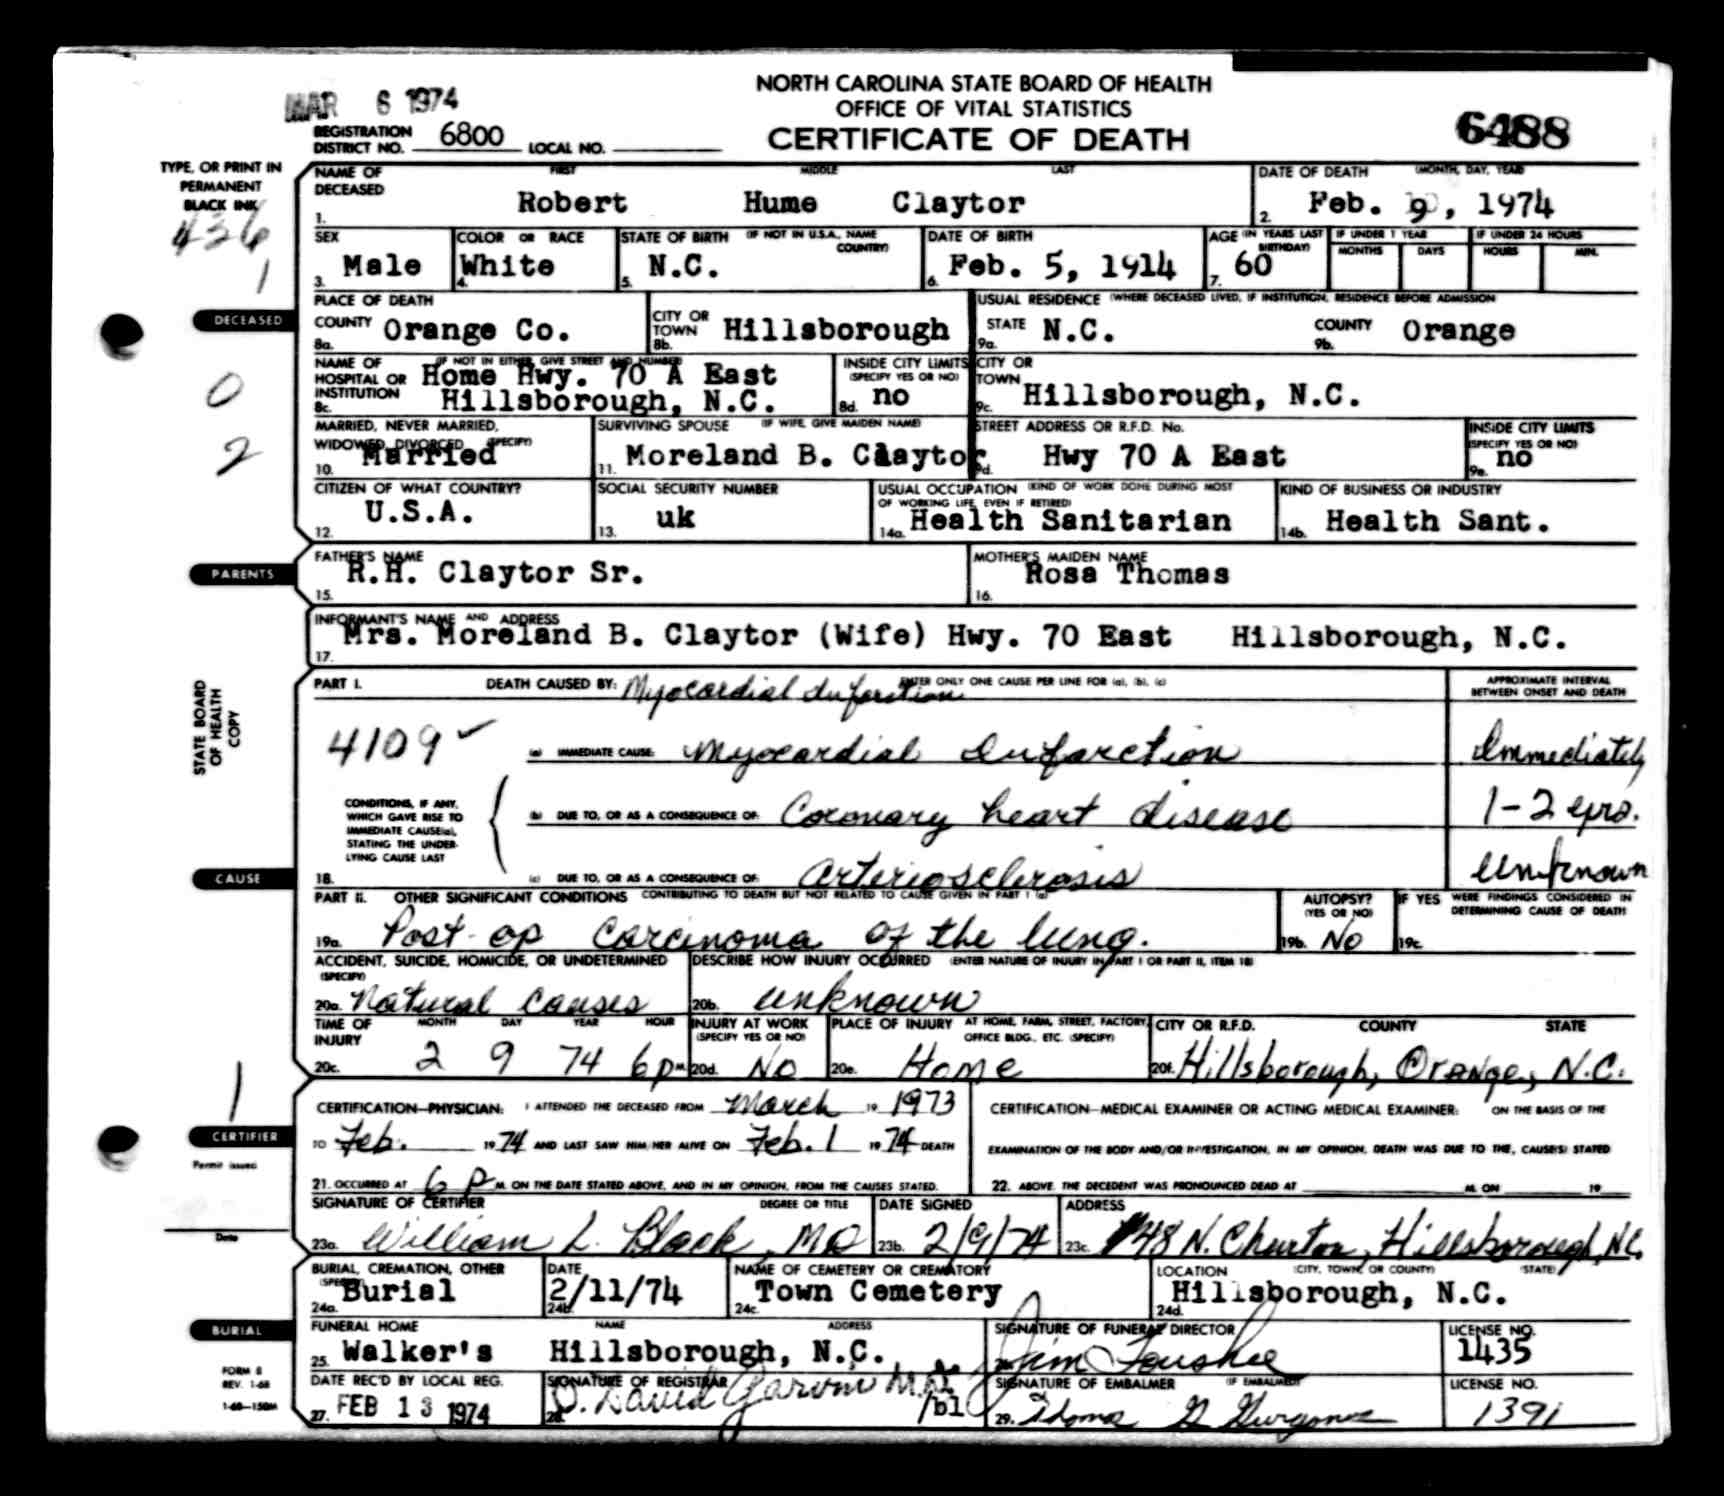 NORTH CAROLINA STATE BOARD OF HEALTH
OFFICE OF VITAL STATISTICS
CERTIFICATE OF DEATH
MAR 6 1974
6488
REGISTRATION DISTRICT NO. 6800 LOCAL NO.
TYPE, OR PRINT IN
PERMANENT
BLACK INK
436
1
NAME OF DECEASED FIRST MIDDLE LAST
1. Robert Hume Claytor
DATE OF DEATH (MONTH, DAY, YEAR)
2. Feb. 9, 1974
SEX
3. Male
COLOR OR RACE
4. White
STATE OF BIRTH (IF NOT IN U.S.A., NAME COUNTRY)
5. N.C.
DATE OF BIRTH
6. Feb. 5, 1914
AGE (IN YEARS LAST BIRTHDAY)
7. 60
IF UNDER 1 YEAR
MONTHS DAYS
IF UNDER 24 HOURS
HOURS MIN.
DECEASED
PLACE OF DEATH
COUNTY Orange Co.
8a.
CITY OR TOWN Hillsborough
8b.
USUAL RESIDENCE (WHERE DECEASED LIVED, IF INSTITUTION, RESIDENCE BEFORE ADMISSION
STATE N.C.
9a.
COUNTY Orange
9b.
0
2
NAME OF HOSPITAL OR INSTITUTION (IF NOT IN EITHER, GIVE STREET AND NUMBER)
Home Hwy. 70 A East
8c. Hillsborough, N.C.
INSIDE CITY LIMITS
(SPECIFY YES OR NO)
8d. no
CITY OR TOWN
9c. Hillsborough, N.C.
MARRIED, NEVER MARRIED,
WIDOWED, DIVORCED (SPECIFY)
10. Married
SURVIVING SPOUSE (IF WIFE, GIVE MAIDEN NAME)
11. Moreland B. Claytor
STREET ADDRESS OR R.F.D. No.
9d. Hwy 70 A East
INSIDE CITY LIMITS
(SPECIFY YES OR NO)
9e. no
CITIZEN OF WHAT COUNTRY?
12. U.S.A.
SOCIAL SECURITY NUMBER
13. uk
USUAL OCCUPATION (KIND OF WORK DONE DURING MOST
OF WORKING LIFE, EVEN IF RETIRED)
14a. Health Sanitarian
KIND OF BUSINESS OR INDUSTRY
14b. Health Sant.
PARENTS
FATHER'S NAME
R.H. Claytor Sr.
15.
MOTHER'S MAIDEN NAME
Rosa Thomas
16.
INFORMANT'S NAME AND ADDRESS
Mrs. Moreland B. Claytor (Wife) Hwy. 70 East Hillsborough, N.C.
17.
STATE BOARD
OF HEALTH
COPY
PART I. DEATH CAUSED BY: ENTER ONLY ONE CAUSE PER LINE FOR (a), (b), (c)
Myocardial Infarction
APPROXIMATE INTERVAL
BETWEEN ONSET AND DEATH
4109
(a) IMMEDIATE CAUSE: Myocardial Infarction Immediately
CONDITIONS, IF ANY,
WHICH GAVE RISE TO
IMMEDIATE CAUSE(a),
STATING THE UNDER-
LYING CAUSE LAST
(b) DUE TO, OR AS A CONSEQUENCE OF: Coronary heart disease 1-2 yrs.
CAUSE
18. (c) DUE TO, OR AS A CONSEQUENCE OF: Arteriosclerosis Unknown
PART II. OTHER SIGNIFICANT CONDITIONS CONTRIBUTING TO DEATH BUT NOT RELATED TO CAUSE GIVEN IN PART I (a)
19a. Post-op Carcinoma of the lung.
AUTOPSY?
(YES OR NO)
19b. No
IF YES WERE FINDINGS CONSIDERED IN
DETERMINING CAUSE OF DEATH
19c.
ACCIDENT, SUICIDE, HOMICIDE, OR UNDETERMINED
(SPECIFY)
20a. Natural Causes
DESCRIBE HOW INJURY OCCURRED (ENTER NATURE OF INJURY IN PART I OR PART II, ITEM 18)
20b. unknown
TIME OF INJURY MONTH DAY YEAR HOUR
20c. 2 9 74 6 p M.
INJURY AT WORK
(SPECIFY YES OR NO)
20d. No
PLACE OF INJURY AT HOME, FARM, STREET, FACTORY,
OFFICE BLDG., ETC. (SPECIFY)
20e. Home
CITY OR R.F.D. COUNTY STATE
20f. Hillsborough, Orange, N.C.
1
CERTIFIER
Permit issued
Date
CERTIFICATION—PHYSICIAN: I ATTENDED THE DECEASED FROM March 19 1973
TO Feb. 19 74 AND LAST SAW HIM/HER ALIVE ON Feb. 1 19 74 DEATH
21. OCCURRED AT 6 P M. ON THE DATE STATED ABOVE, AND IN MY OPINION, FROM THE CAUSES STATED.
CERTIFICATION—MEDICAL EXAMINER OR ACTING MEDICAL EXAMINER: ON THE BASIS OF THE
EXAMINATION OF THE BODY AND/OR INVESTIGATION, IN MY OPINION, DEATH WAS DUE TO THE, CAUSE(S) STATED
22. ABOVE. THE DECEDENT WAS PRONOUNCED DEAD AT M. ON 19
SIGNATURE OF CERTIFIER DEGREE OR TITLE
23a. William L. Black, MD
DATE SIGNED
23b. 2/9/74
ADDRESS
23c. 148 N. Churton, Hillsborough, NC.
BURIAL
BURIAL, CREMATION, OTHER
(SPECIFY) Burial
24a.
DATE
2/11/74
24b.
NAME OF CEMETERY OR CREMATORY
Town Cemetery
24c.
LOCATION (CITY, TOWN, OR COUNTY) (STATE)
Hillsborough, N.C.
24d.
FUNERAL HOME NAME ADDRESS
25. Walker's Hillsborough, N.C.
SIGNATURE OF FUNERAL DIRECTOR
Jim Foushee
LICENSE NO.
1435
FORM 8
REV. 1-68
1-68—150M
DATE REC'D BY LOCAL REG.
27. FEB 13 1974
SIGNATURE OF REGISTRAR
28. O. David Garvin M.D.
/bl
SIGNATURE OF EMBALMER (IF EMBALMED)
29. Thomas G
LICENSE NO.
1391